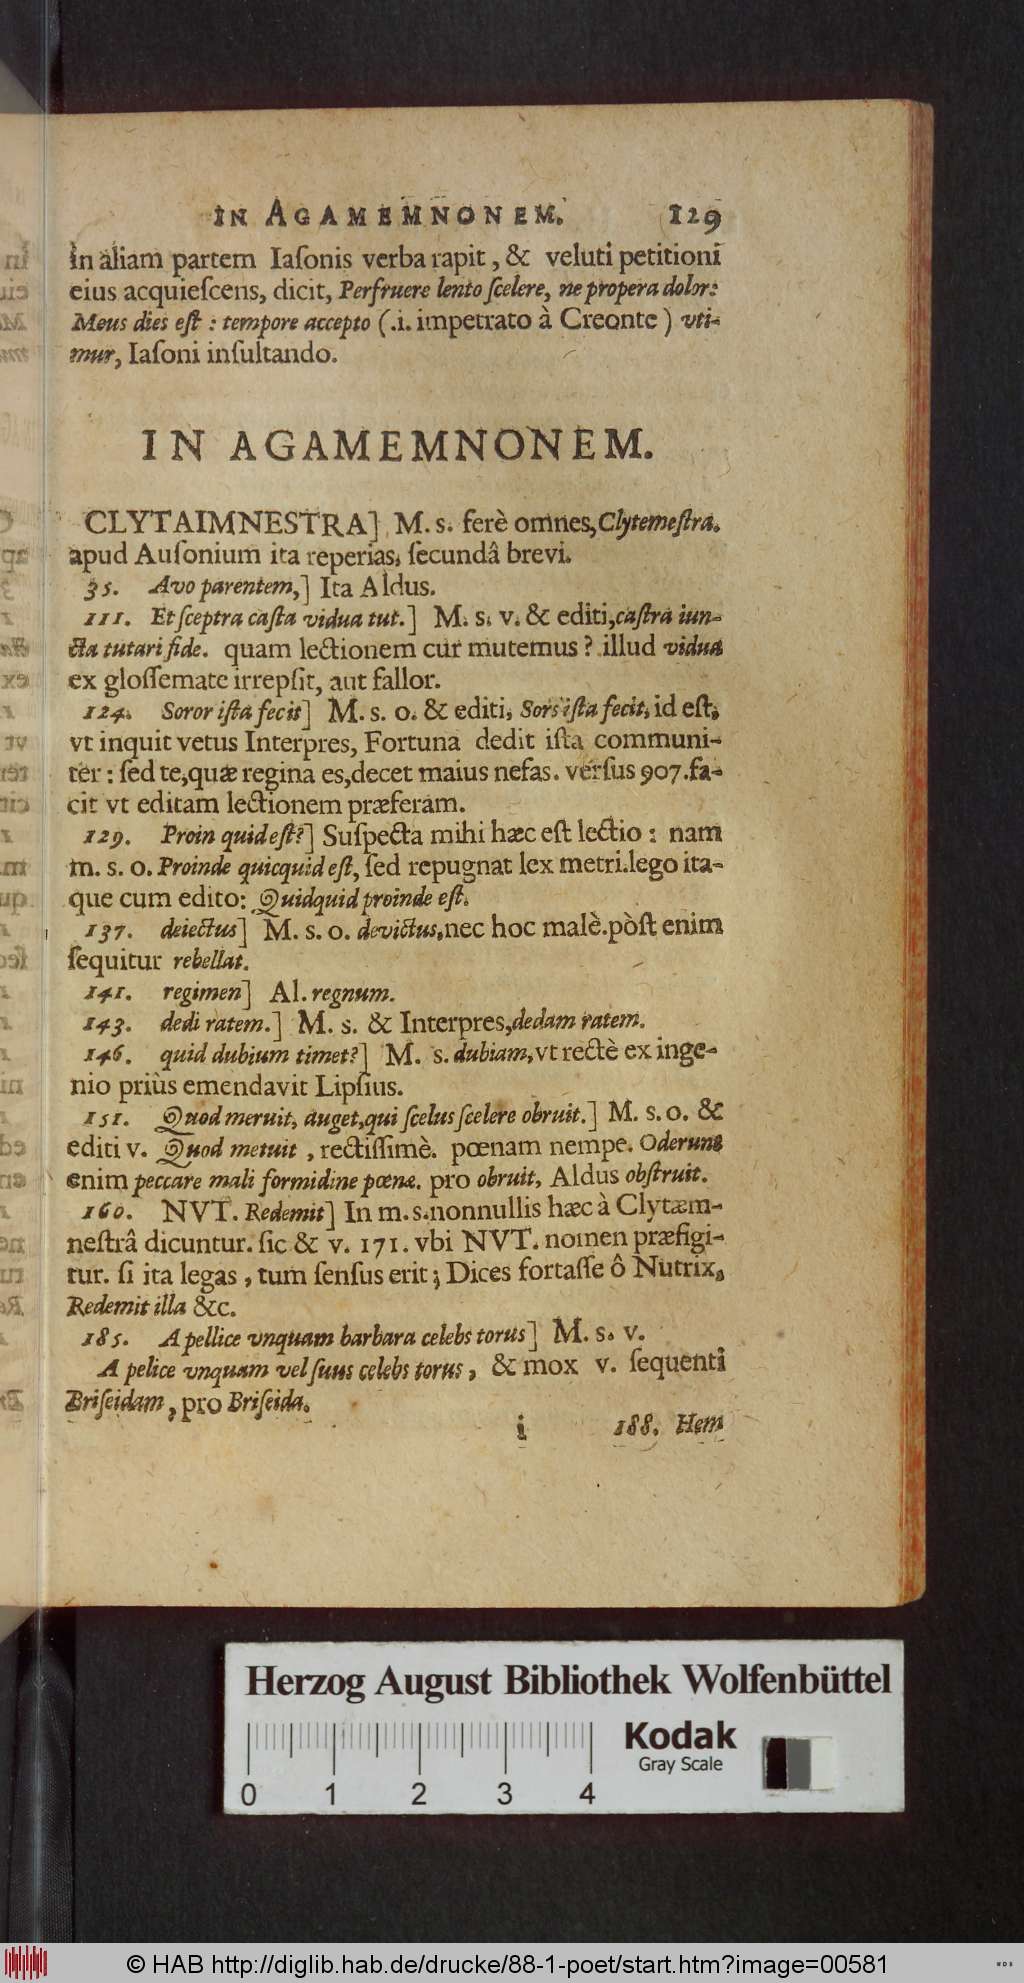 IN AGAMEMNONEM. 129
in aliam partem Iaſonis verba rapit, & veluti petitioni
eius acquieſcens, dicit, Perfruere lento ſcelere, ne propera dolor:
Meus dies eſt : tempore accepto (.i. impetrato à Creonte) vti-
mur, Iaſoni inſultando.
IN AGAMEMNONEM.
CLYTAIMNESTRA] M. s. ferè omnes, Clytemeſtra.
apud Auſonium ita reperias, ſecundâ brevi.
35. Avo parentem,] Ita Aldus.
111. Et ſceptra caſta vidua tut.] M. s. v. & editi, caſtra iun-
cta tutari fide. quam lectionem cur mutemus? illud vidua
ex gloſſemate irrepſit, aut fallor.
124. Soror iſta fecit] M. s. o. & editi, Sors iſta fecit, id eſt,
vt inquit vetus Interpres, Fortuna dedit iſta communi-
ter: ſed te, quæ regina es, decet maius nefas. verſus 907. fa-
cit vt editam lectionem præferam.
129. Proin quid eſt?] Suſpecta mihi hæc eſt lectio: nam
m. s. o. Proinde quicquid eſt, ſed repugnat lex metri. lego ita-
que cum edito: Quidquid proinde eſt.
137. deiectus] M. s. o. devictus, nec hoc malè. pòſt enim
ſequitur rebellat.
141. regimen] Al. regnum.
143. dedi ratem.] M. s. & Interpres, dedam ratem.
146. quid dubium timet?] M. s. dubiam, vt rectè ex inge-
nio priùs emendavit Lipſius.
151. Quod meruit, auget, qui ſcelus ſcelere obruit.] M. s. o. &
editi v. Quod metuit, rectiſſimè. pœnam nempe. Oderunt
enim peccare mali formidine pœnæ. pro obruit, Aldus obſtruit.
160. NVT. Redemit] In m. s. nonnullis hæc à Clytæm-
neſtrâ dicuntur. ſic & v. 171. vbi NVT. nomen præfigi-
tur. ſi ita legas, tum ſenſus erit; Dices fortaſſe ô Nutrix,
Redemit illa &c.
185. A pellice vnquam barbara celebs torus] M. s. v.
A pelice vnquam vel ſuus celebs torus, & mox v. ſequenti
Briſeidam, pro Briſeida.
i 188. Hem
Herzog August Bibliothek Wolfenbüttel
Kodak
Gray Scale
0 1 2 3 4
© HAB http://diglib.hab.de/drucke/88-1-poet/start.htm?image=00581